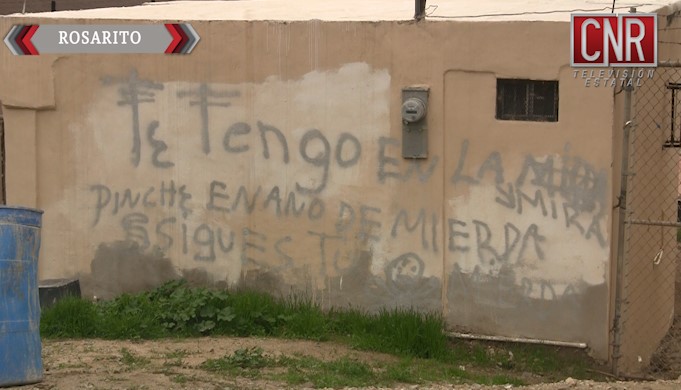 ROSARITO
CNR
TELEVISIÓN
ESTATAL
TE TENGO EN LA MIRA
Y MIRA
PINCHE ENANO DE MIERDA
SIGUES TU